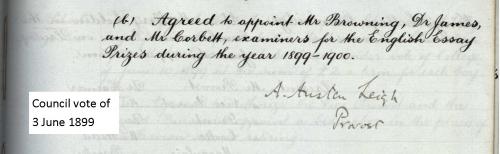 (6) Agreed to appoint Mr Browning, Dr James,
and Mr Corbett, examiners for the English Essay
Prizes during the year 1899-1900.
A. Austen Leigh
Provost
Council vote of
3 June 1899